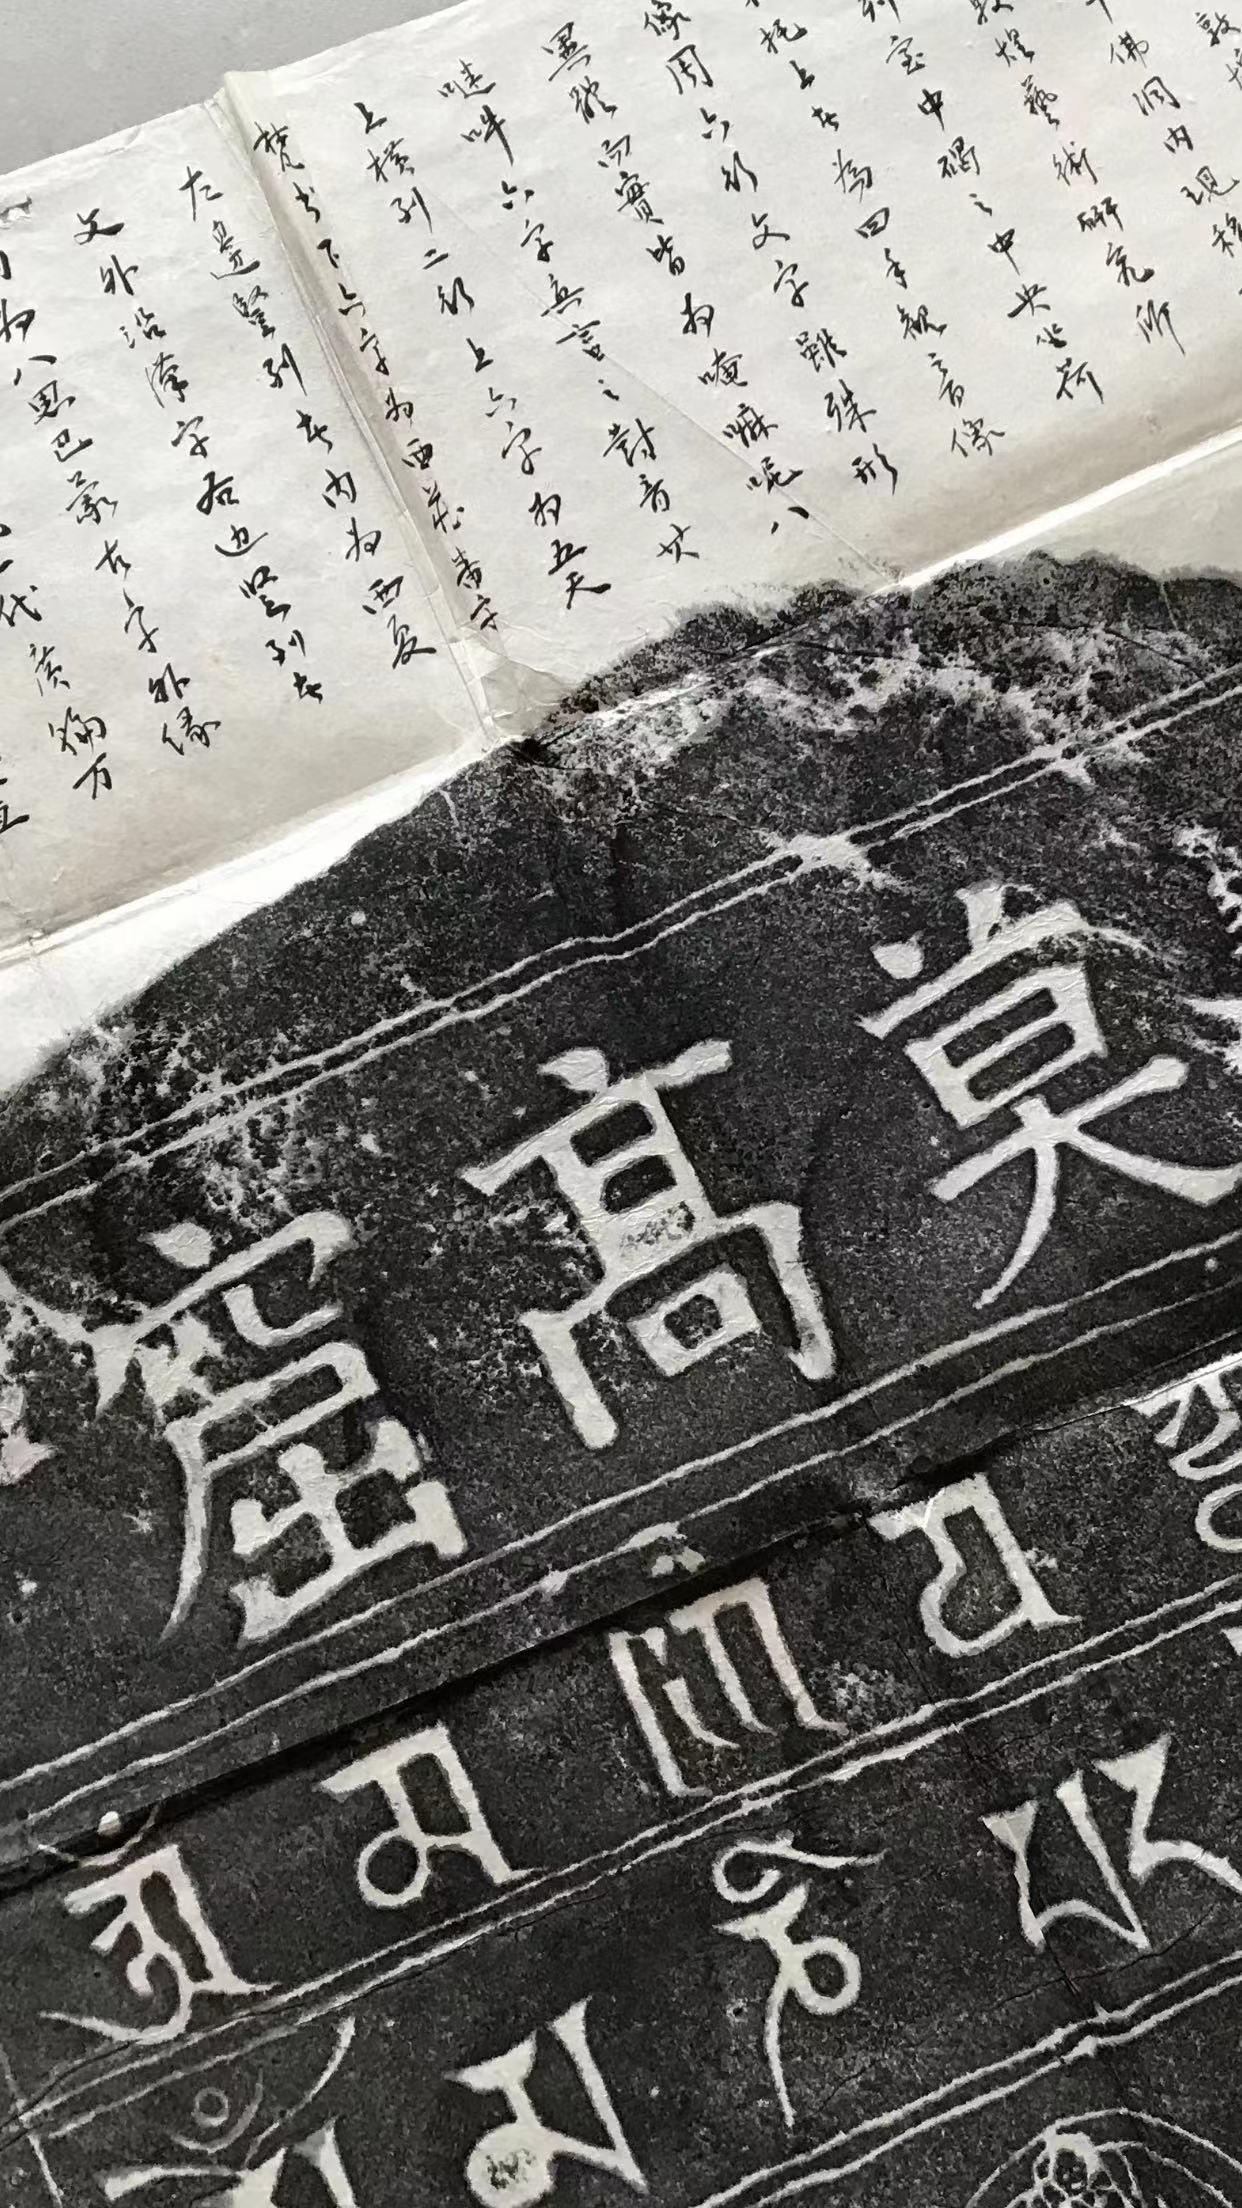 敦煌
佛洞内現移
敦煌藝術研究所
列室中碣之中央坐荷
托上者為四手觀音像
像周六行文字雖殊形
異體而實皆為唵嘛呢八
吽六字真言之對音其
上横列二行上六字為五天
梵书下六字為西藏番字
左邊竪列者内為西夏
文外沿漢字右边竪列者
為八思巴蒙古字外缘
代
莫高窟
ॐ म णि प
མ ཎི པ